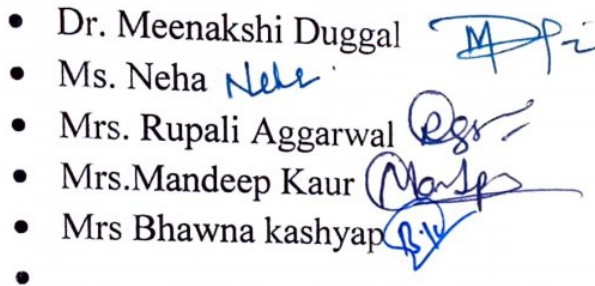 • Dr. Meenakshi Duggal
• Ms. Neha Neha
• Mrs. Rupali Aggarwal
• Mrs.Mandeep Kaur
• Mrs Bhawna kashyap
•